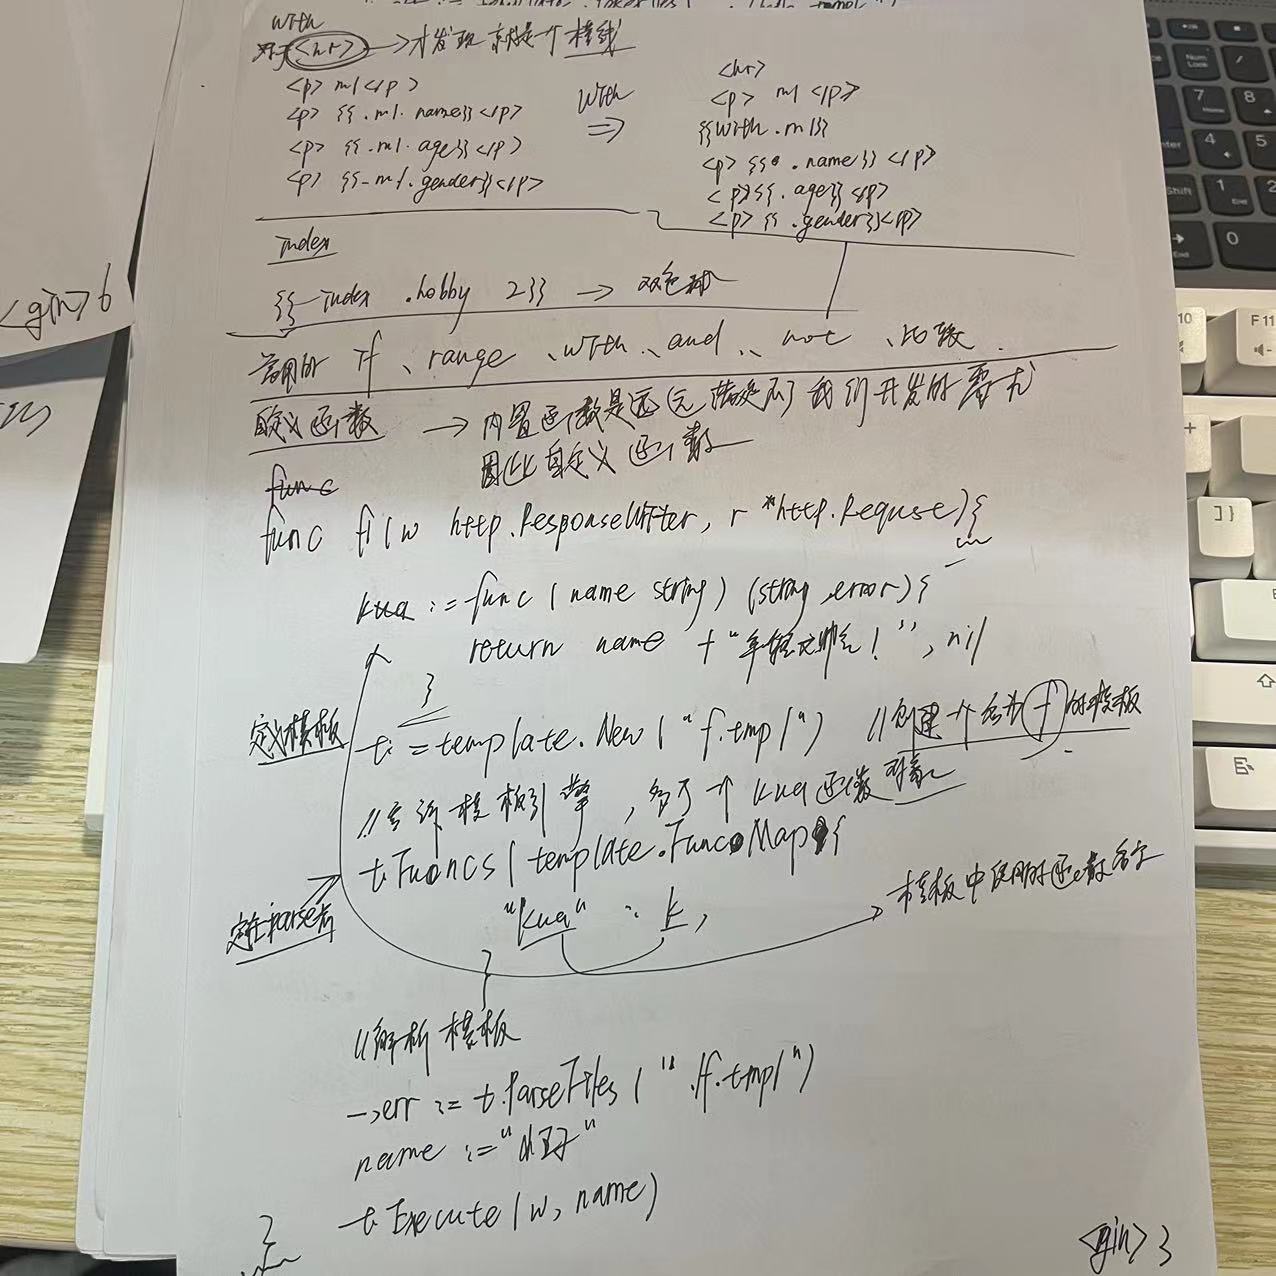 with
<hr> → 才发现 就是个 横线
<p> m1 </p>
<p> {{.m1.name}} </p>
<p> {{.m1.age}} </p>
<p> {{.m1.gender}} </p>
with
⇒
<hr>
<p> m1 </p>
{{with .m1}}
<p> {{.name}} </p>
<p> {{.age}} </p>
<p> {{.gender}} </p>
index
{{index .hobby 2}} → 双色球
常用的 if、range、with、and、not、比较
自定义函数 → 内置函数是远远满足不了我们开发的需求
因此自定义函数
func
func f1(w http.ResponseWriter, r *http.Requse){
kua := func(name string) (string, error){
return name + "年轻又帅气!", nil
}
定义模板
t := template.New("f.tmpl") //创建一个名为f的模板
//告诉模板引擎,多了一个kua函数
t.Funcs(template.FuncMap{
"kua" : k,
→ 模板中使用的函数名字
}
//解析模板
_,err := t.ParseFiles("./f.tmpl")
name :="小王子"
t.Execute(w, name)
}
<gin> 3
<gin> 6